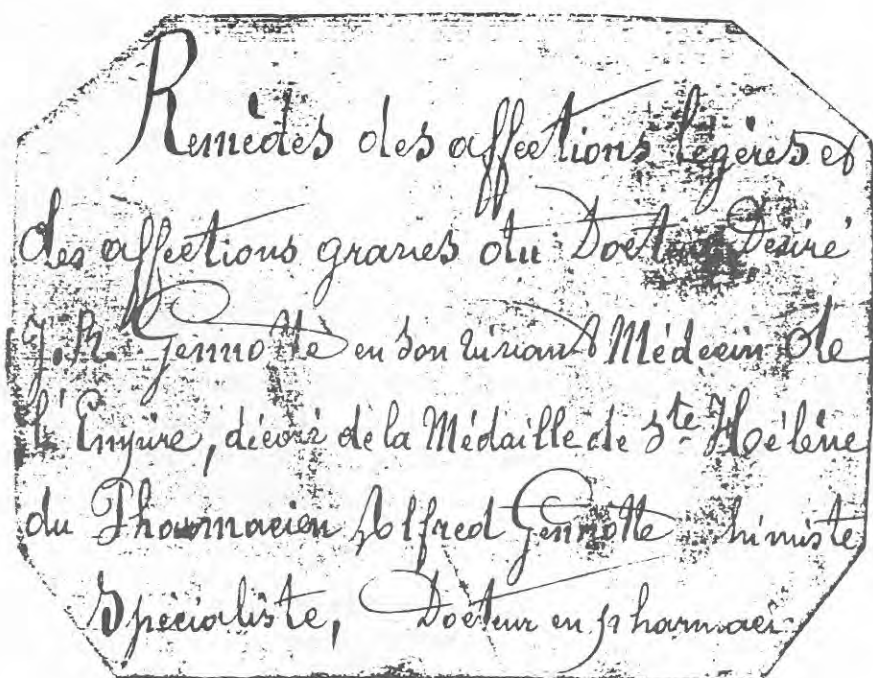 Remèdes des affections légères et
des affections graves du Docteur Désiré
J. h. Gennotte en son vivant Médecin de
l'Empire, décoré de la Médaille de Ste Hélène
du Pharmacien Alfred Gennotte himiste
Spécialiste, Docteur en pharmaci